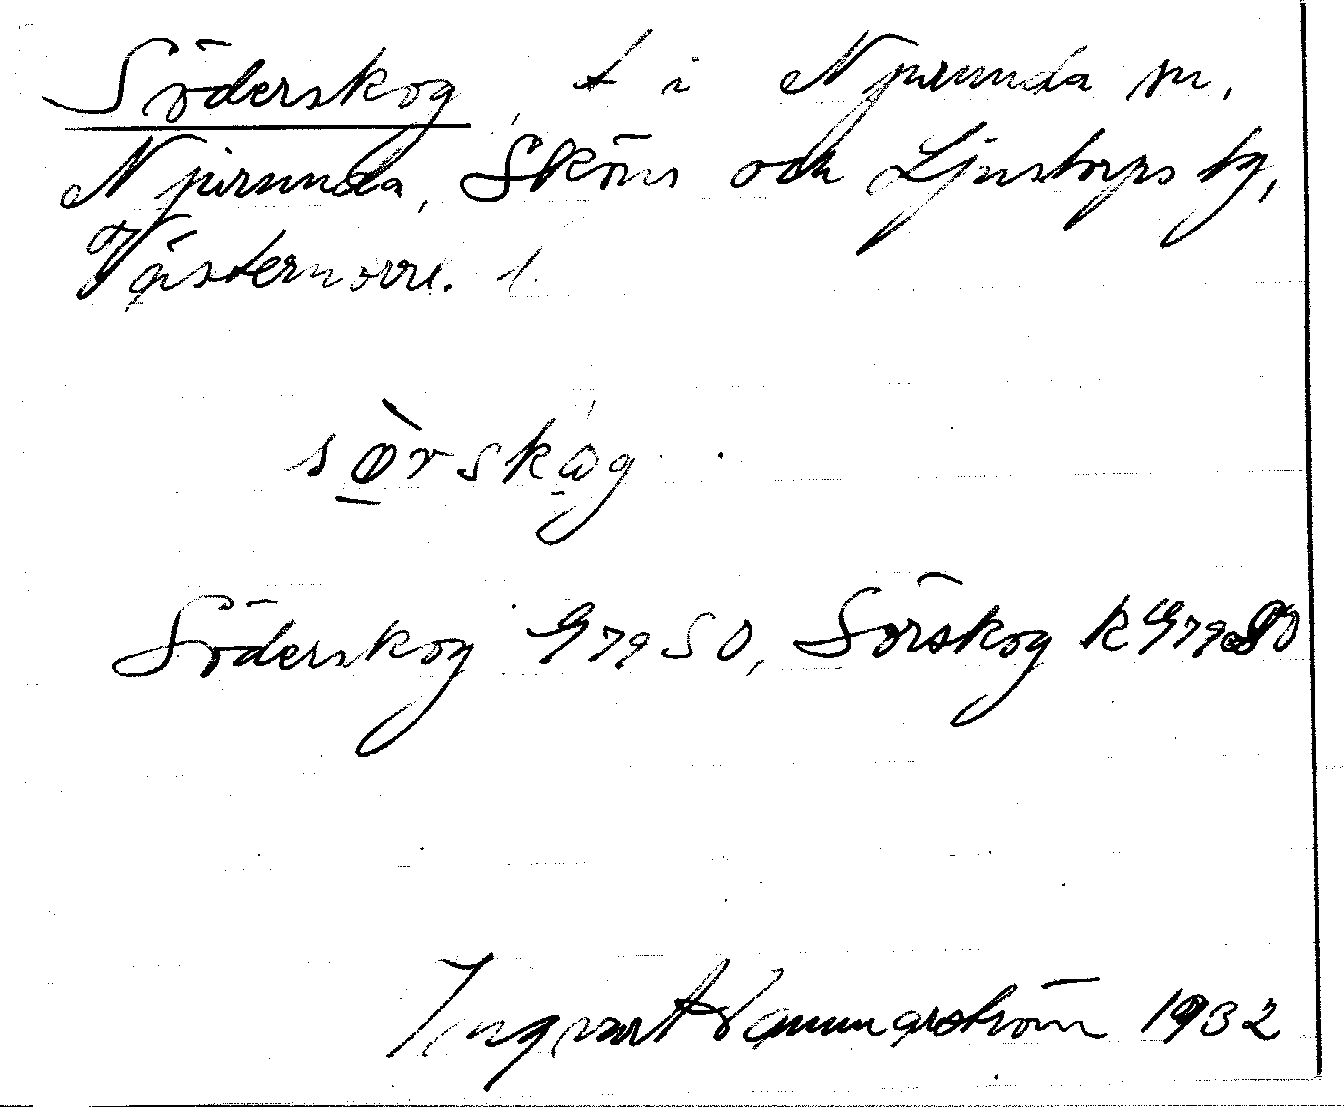 Söderskog t i Njurunda sn,
Njurunda, Sköns och Ljustorps tg,
Västernorrl. l.
sø̀rskåg
Söderskog G79SO, Sörskog k G79SO
Hammarström 1932